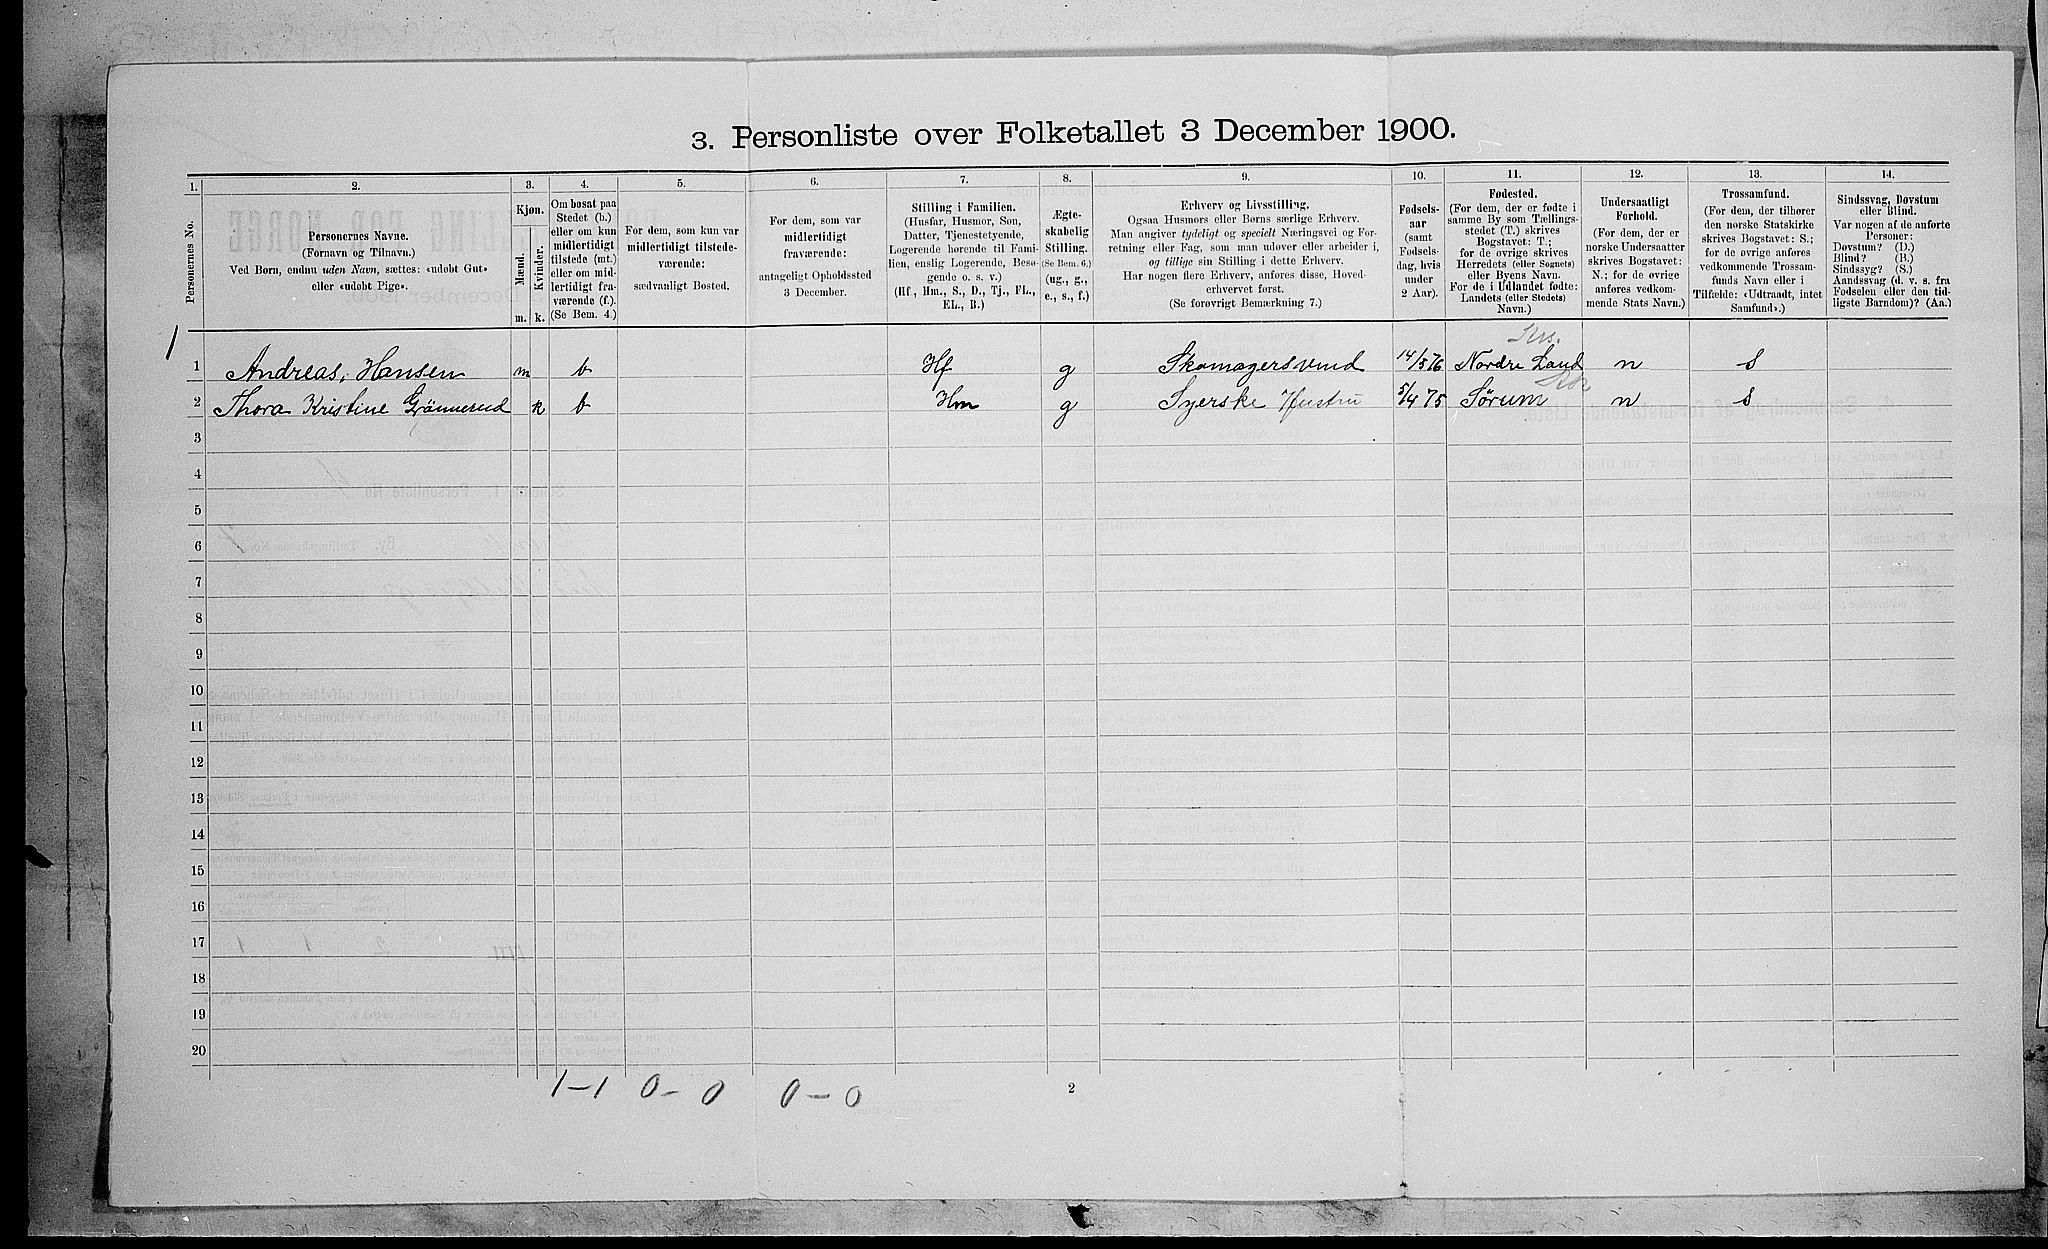 3. Personliste over Folketallet 3 December 1900.
1. 2. 3. 4. 5. 6. 7. 8. 9. 10. 11. 12. 13. 14.
Personernes No.
Personernes Navne.
(Fornavn og Tilnavn.)
Ved Børn, endnu uden Navn, sættes: «udøbt Gut»
eller «udøbt Pige».
Kjøn.
Mænd. Kvinder.
m. k.
Om bosat paa
Stedet (b.)
eller om kun
midlertidigt
tilstede (mt.)
eller om mid-
lertidigt fra-
værende (f.)
(Se Bem. 4.)
For dem, som kun var
midlertidigt tilstede-
værende:
sædvanligt Bosted.
For dem, som var
midlertidigt
fraværende:
antageligt Opholdssted
3 December.
Stilling i Familien.
(Husfar, Husmor, Søn,
Datter, Tjenestetyende,
Logerende hørende til Fami-
lien, enslig Logerende, Besø-
gende o. s. v.)
(Hf, Hm., S., D., Tj., FL.,
EL., B.)
Ægte-
skabelig
Stilling.
(Se Bem. 6.)
(ug., g.,
e., s., f.)
Erhverv og Livsstilling.
Ogsaa Husmors eller Børns særlige Erhverv.
Man angiver tydeligt og specielt Næringsvei og For-
retning eller Fag, som man udover eller arbeider i,
og tillige sin Stilling i dette Erhverv.
Har nogen flere Erhverv, anføres disse, Hoved-
erhvervet først.
(Se forøvrigt Bemærkning 7.)
Fødsels-
aar
(samt
Fødsels-
dag, hvis
under
2 Aar).
Fødested.
(For dem, der er fødte i
samme By som Tællings-
stedet (T.) skrives
Bogstavet: T.;
for de øvrige skrives
Herredets (eller Sognets)
eller Byens Navn.
For de i Udlandet fødte:
Landets (eller Stedets)
Navn.)
Undersaatligt
Forhold.
(For dem, der er
norske Undersaatter
skrives Bogstavet:
N.; for de øvrige
anføres vedkom-
mende Stats Navn.)
Trossamfund.
(For dem, der tilhører
den norske Statskirke
skrives Bogstavet: S.;
for de øvrige anføres
vedkommende Trossam-
funds Navn eller i
Tilfælde: «Udtraadt, intet
Samfund».)
Sindssvag, Døvstum
eller Blind.
Var nogen af de anførte
Personer:
Døvstum? (D.)
Blind? (B.)
Sindssyg? (S.)
Aandssvag (d. v. s. fra
Fødselen eller den tid-
ligste Barndom)? (Aa.)
1
Krs.
1 Andreas, Hansen m b Hf g Skomagersvend 14/5 76 Nordre Land n s
2 Thora Kristine Grønnerud k b Hm g Syerske Hustru 5/4 75 Sørum n s
3
4
5
6
7
8
9
10
11
12
13
14
15
16
17
18
19
20
1-1 0-0 0-0
2